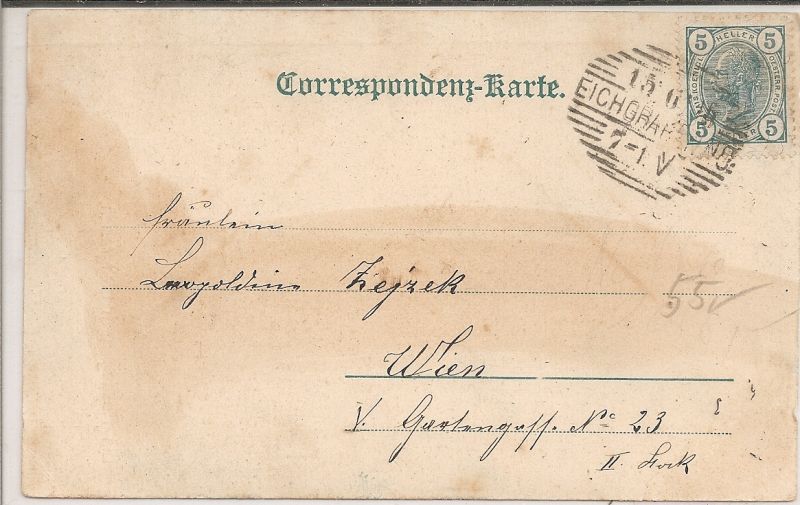 5 HELLER 5
5 HELLER 5
Correspondenz-Karte.
15 6
EICHGRABEN
7-1 V
Fräulein
Leopoldine Zejzek
Wien
V. Gartengasse No 23
II. Stock
55